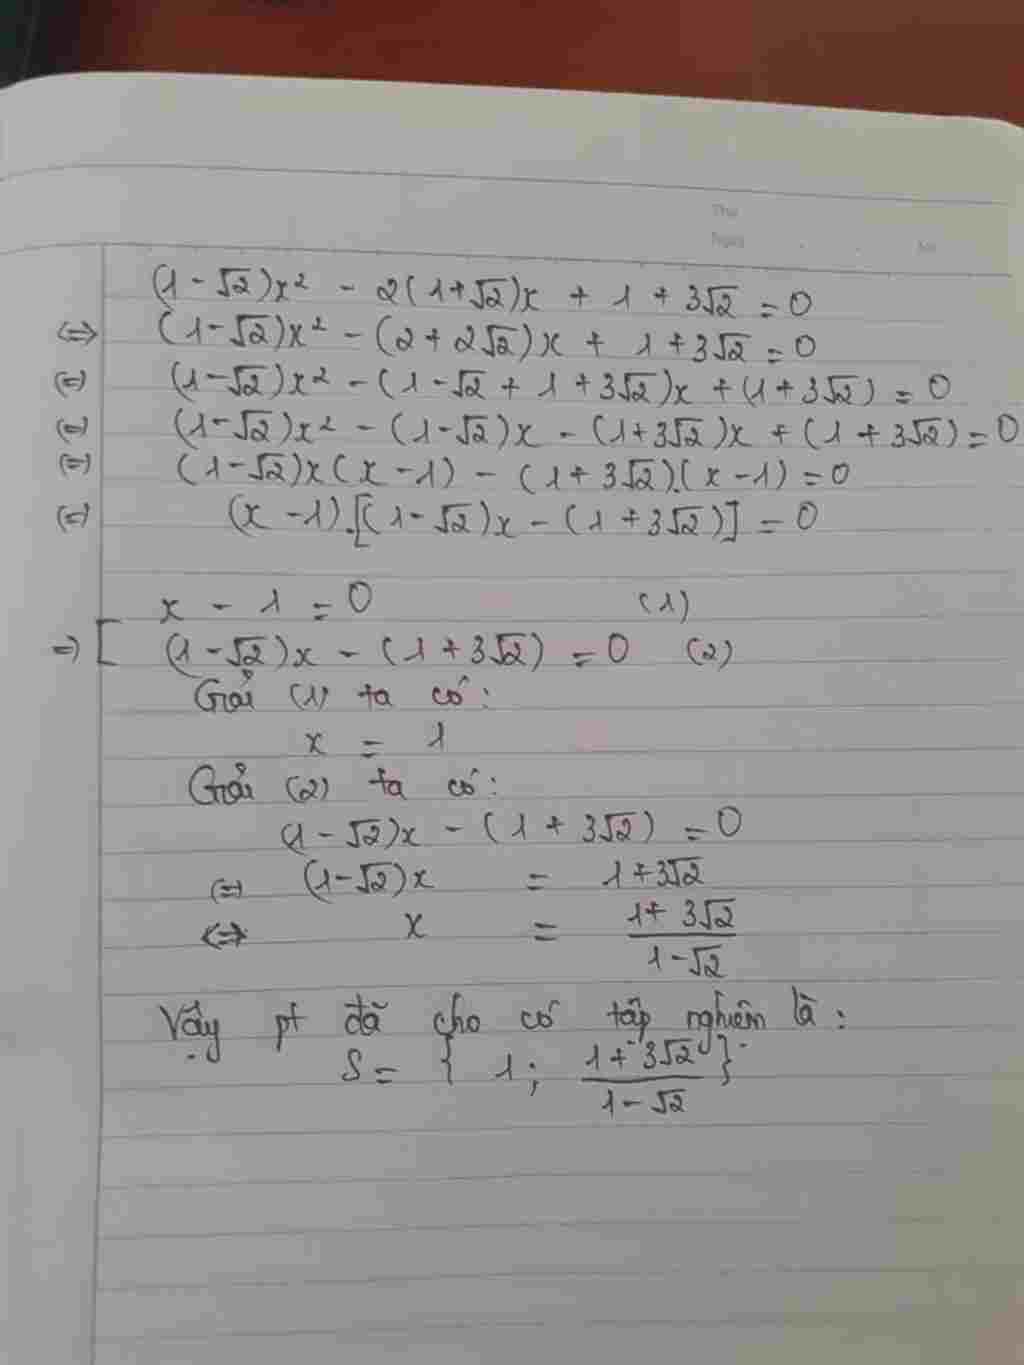 Thứ
Ngày . . No.
(1-√2)x² - 2(1+√2)x + 1 + 3√2 = 0
⇔ (1-√2)x² - (2+2√2)x + 1+3√2 = 0
(=) (1-√2)x² - (1-√2 + 1 + 3√2)x + (1+3√2) = 0
(=) (1-√2)x² - (1-√2)x - (1+3√2)x + (1+3√2) = 0
(=) (1-√2)x(x-1) - (1+3√2).(x-1) = 0
(=) (x-1).[(1-√2)x - (1+3√2)] = 0
x - 1 = 0 (1)
=) [ (1-√2)x - (1+3√2) = 0 (2)
Giải (1) ta có:
x = 1
Giải (2) ta có:
(1-√2)x - (1+3√2) = 0
(=) (1-√2)x = 1+3√2
⇔ x = \frac{1+3√2}{1-√2}
Vậy pt đã cho có tập nghiệm là:
S = { 1; \frac{1+3√2}{1-√2} }